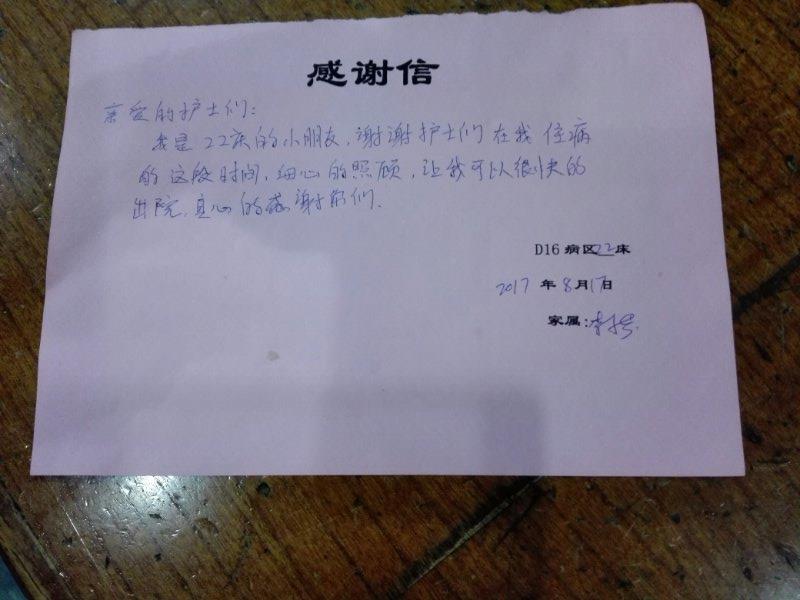 感谢信
亲爱的护士们:
我是22床的小朋友,谢谢护士们在我住病
的这段时间,细心的照顾,让我可以很快的
出院,真心的感谢你们.
D16 病区22床
2017 年8月17日
家属: